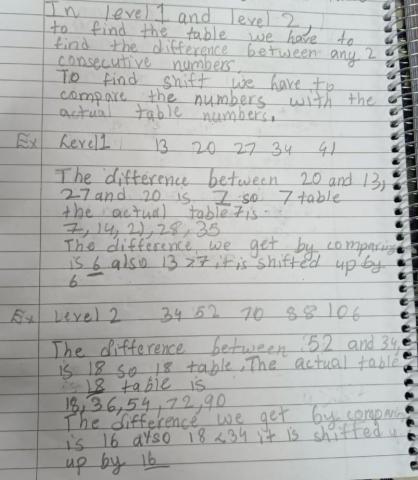 In level 1 and level 2,
to find the table we have to
find the difference between any 2
consecutive numbers.
To find shift we have to
compare the numbers with the
actual table numbers.
Ex Level 1 13 20 27 34 41
The difference between 20 and 13,
27 and 20 is 7 so 7 table
the actual table 7 is
7, 14, 21, 28, 35
The difference we get by comparing
is 6 also 13 > 7 it is shifted up by
6
Ex Level 2 34 52 70 88 106
The difference between 52 and 34
is 18 so 18 table, The actual table
18 table is
18, 36, 54, 72, 90
The difference we get by comparing
is 16 also 18 < 34 it is shifted
up by 16